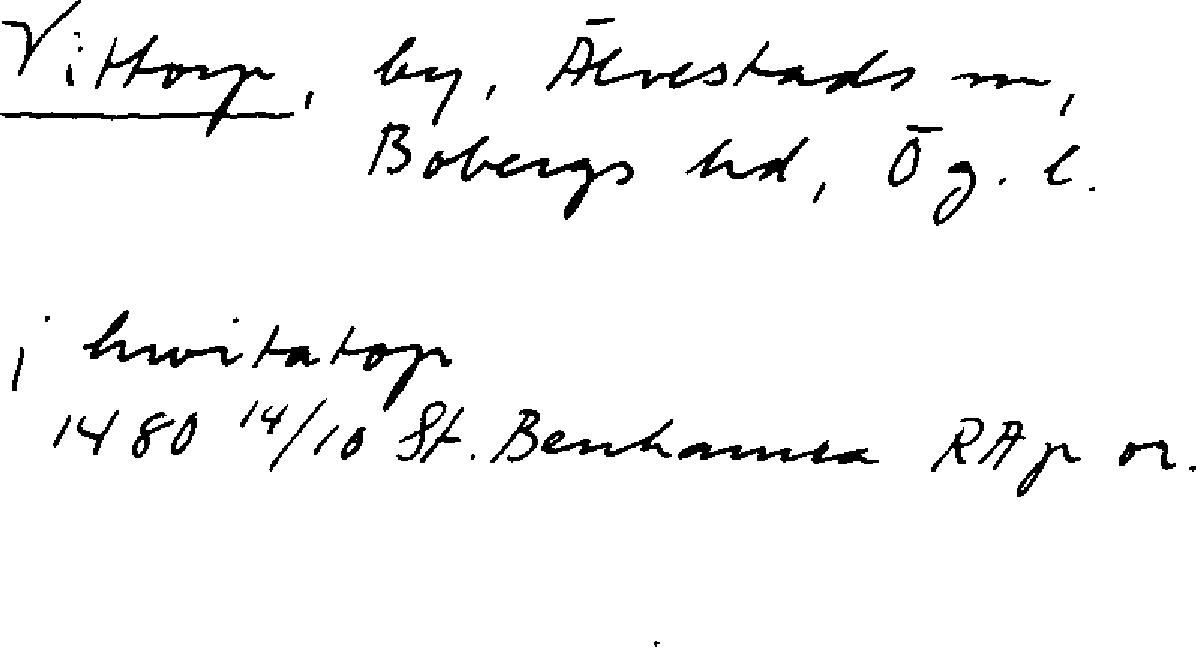 Vittorp, by, Älvestads sn,
Bobergs hd, Ög. l.
j hwitatop
1480 14/10 St. Benhamra RAp or.